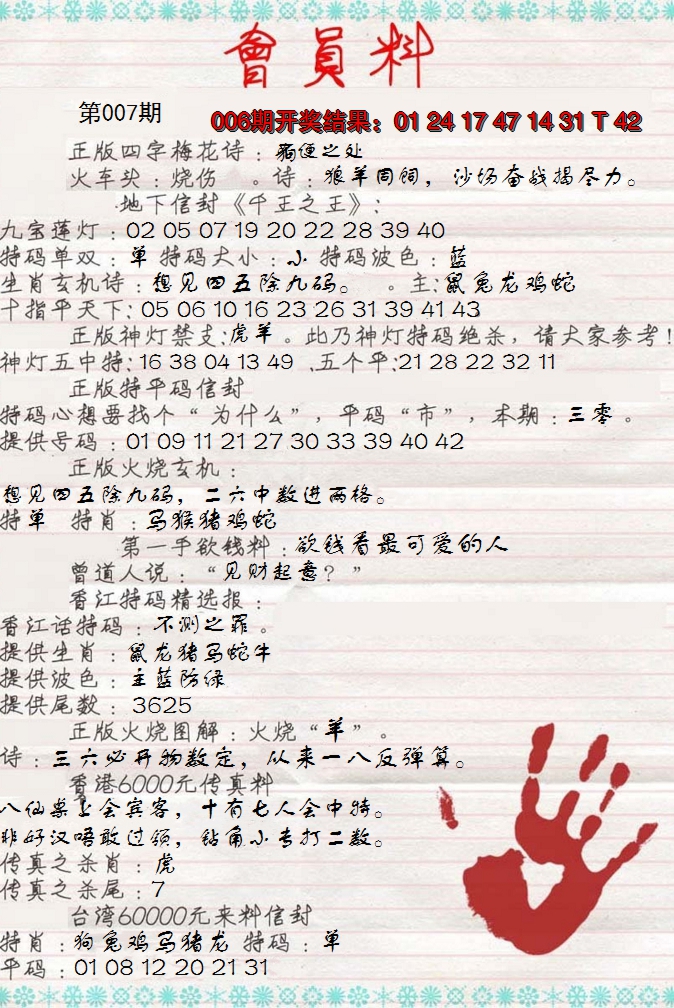 會員料
第007期
006期开奖结果：01 24 17 47 14 31 T 42
正版四字梅花诗：方便之处
火车头：烧伤 。诗：狼羊同饲，沙场奋战揭尽力。
地下信封《千王之王》：
九宝莲灯：02 05 07 19 20 22 28 39 40
特码单双：单 特码大小：小 特码波色：蓝
生肖玄机诗：想见四五除九码。 。主：鼠兔龙鸡蛇
十指平天下：05 06 10 16 23 26 31 39 41 43
正版神灯禁支：虎羊。此乃神灯特码绝杀，请大家参考！
神灯五中特：16 38 04 13 49 、五个平：21 28 22 32 11
正版特平码信封
特码心想要找个“为什么”，平码“市”，本期：三零。
提供号码：01 09 11 21 27 30 33 39 40 42
正版火烧玄机：
想见四五除九码，二六中数进两格。
特单 特肖：马猴猪鸡蛇
第一手欲钱料：欲钱看最可爱的人
曾道人说：“见财起意？”
香江特码精选报：
香江话特码：不测之罪。
提供生肖：鼠龙猪马蛇牛
提供波色：主蓝防绿
提供尾数：3625
正版火烧图解：火烧“羊”。
诗：三六必开物数定，从来一八反弹算。
香港6000元传真料
八仙桌上会宾客，十有七人会中特。
非好汉唔敢过领，钻角小专打二数。
传真之杀肖：虎
传真之杀尾：7
台湾60000元来料信封
特肖：狗兔鸡马猪龙 特码：单
平码：01 08 12 20 21 31